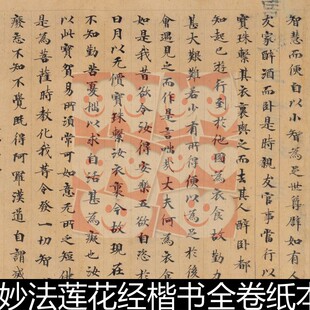 智慧而便自以小智為足世尊譬如有人
友家醉酒而臥是時親友官事當行以
寶珠繫其衣裏與之而去其人醉臥都
知起已遊行到於他國為衣食故勤力
甚大艱難若少有所得便以為足於後
會遇見之而作是言咄哉丈夫何為衣食
如是我昔欲令汝得安樂五欲自恣於
日月以无價寶珠繫汝衣裏今故現在
不知勤苦憂惱以求自活甚為癡也汝
以此寶貿易所須常可如意无所乏短佛
是為菩薩時教化我等令發一切智
廢忘不知不覺既得阿羅漢道自謂滅
妙法莲花经楷书全卷纸本